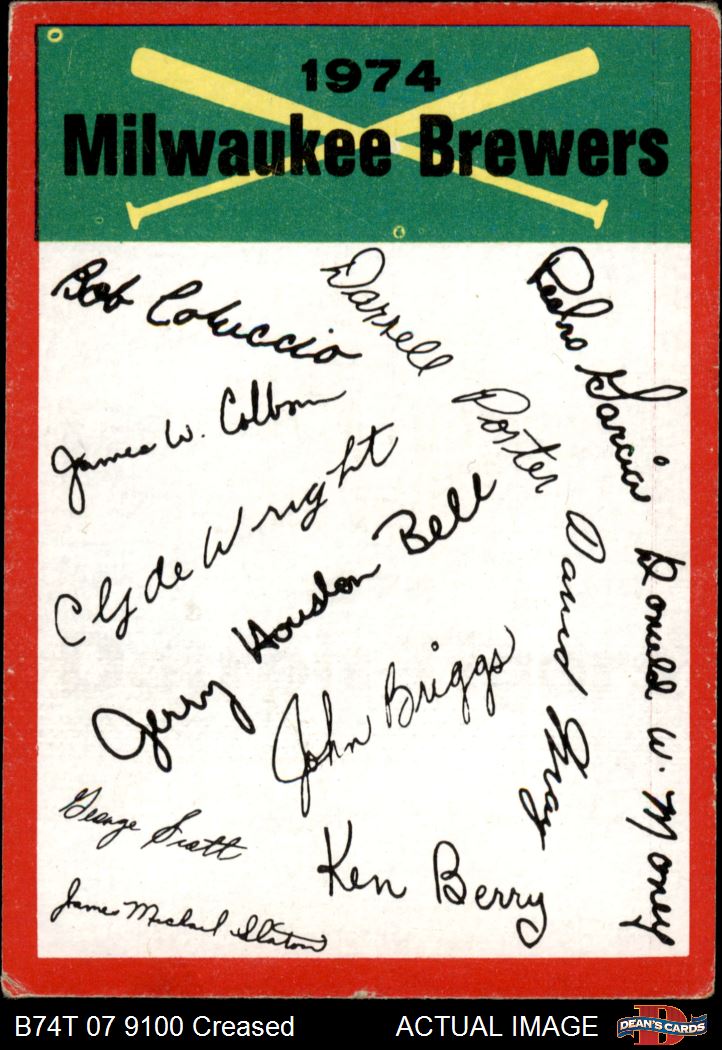 1974
Milwaukee Brewers
Bob Coluccio
Darrell Porter
Pedro Garcia
James W. Colborn
Clyde Wright
Jerry Houston Bell
David May
Donald W. Money
John Briggs
George Scott
Ken Berry
James Michael Slaton
B74T 07 9100 Creased
ACTUAL IMAGE
D
DEAN'S CARDS